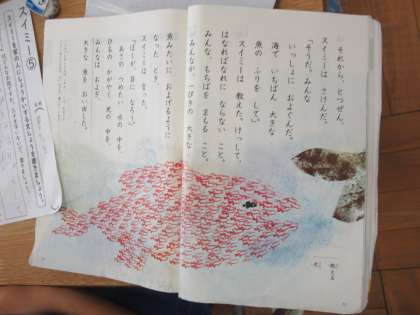 それから、とつぜん、
スイミーは さけんだ。
「そうだ。みんな
いっしょに およぐんだ。
海で いちばん 大きな
魚の ふりを して。」
スイミーは 教えた。けっして、
はなればなれに ならない こと。
みんな、もちばを まもる こと。
みんなが、一ぴきの 大きな
魚みたいに およげるように
なった とき、
スイミーは 言った。
「ぼくが、目に なろう。」
あさの つめたい 水の 中を、
ひるの かがやく 光の 中を、
みんなは およぎ、
大きな 魚を おい出した。
スイミー⑤